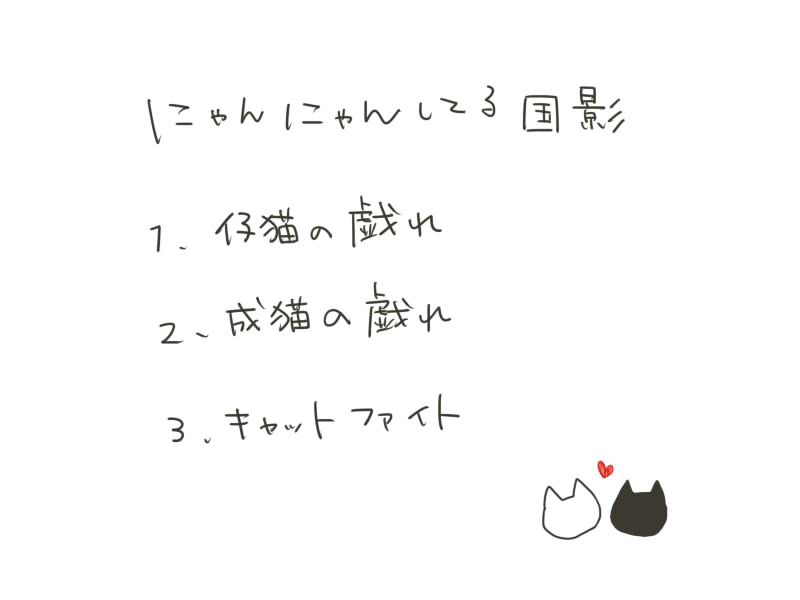 にゃんにゃんしてる国影
1、仔猫の戯れ
2、成猫の戯れ
3、キャットファイト